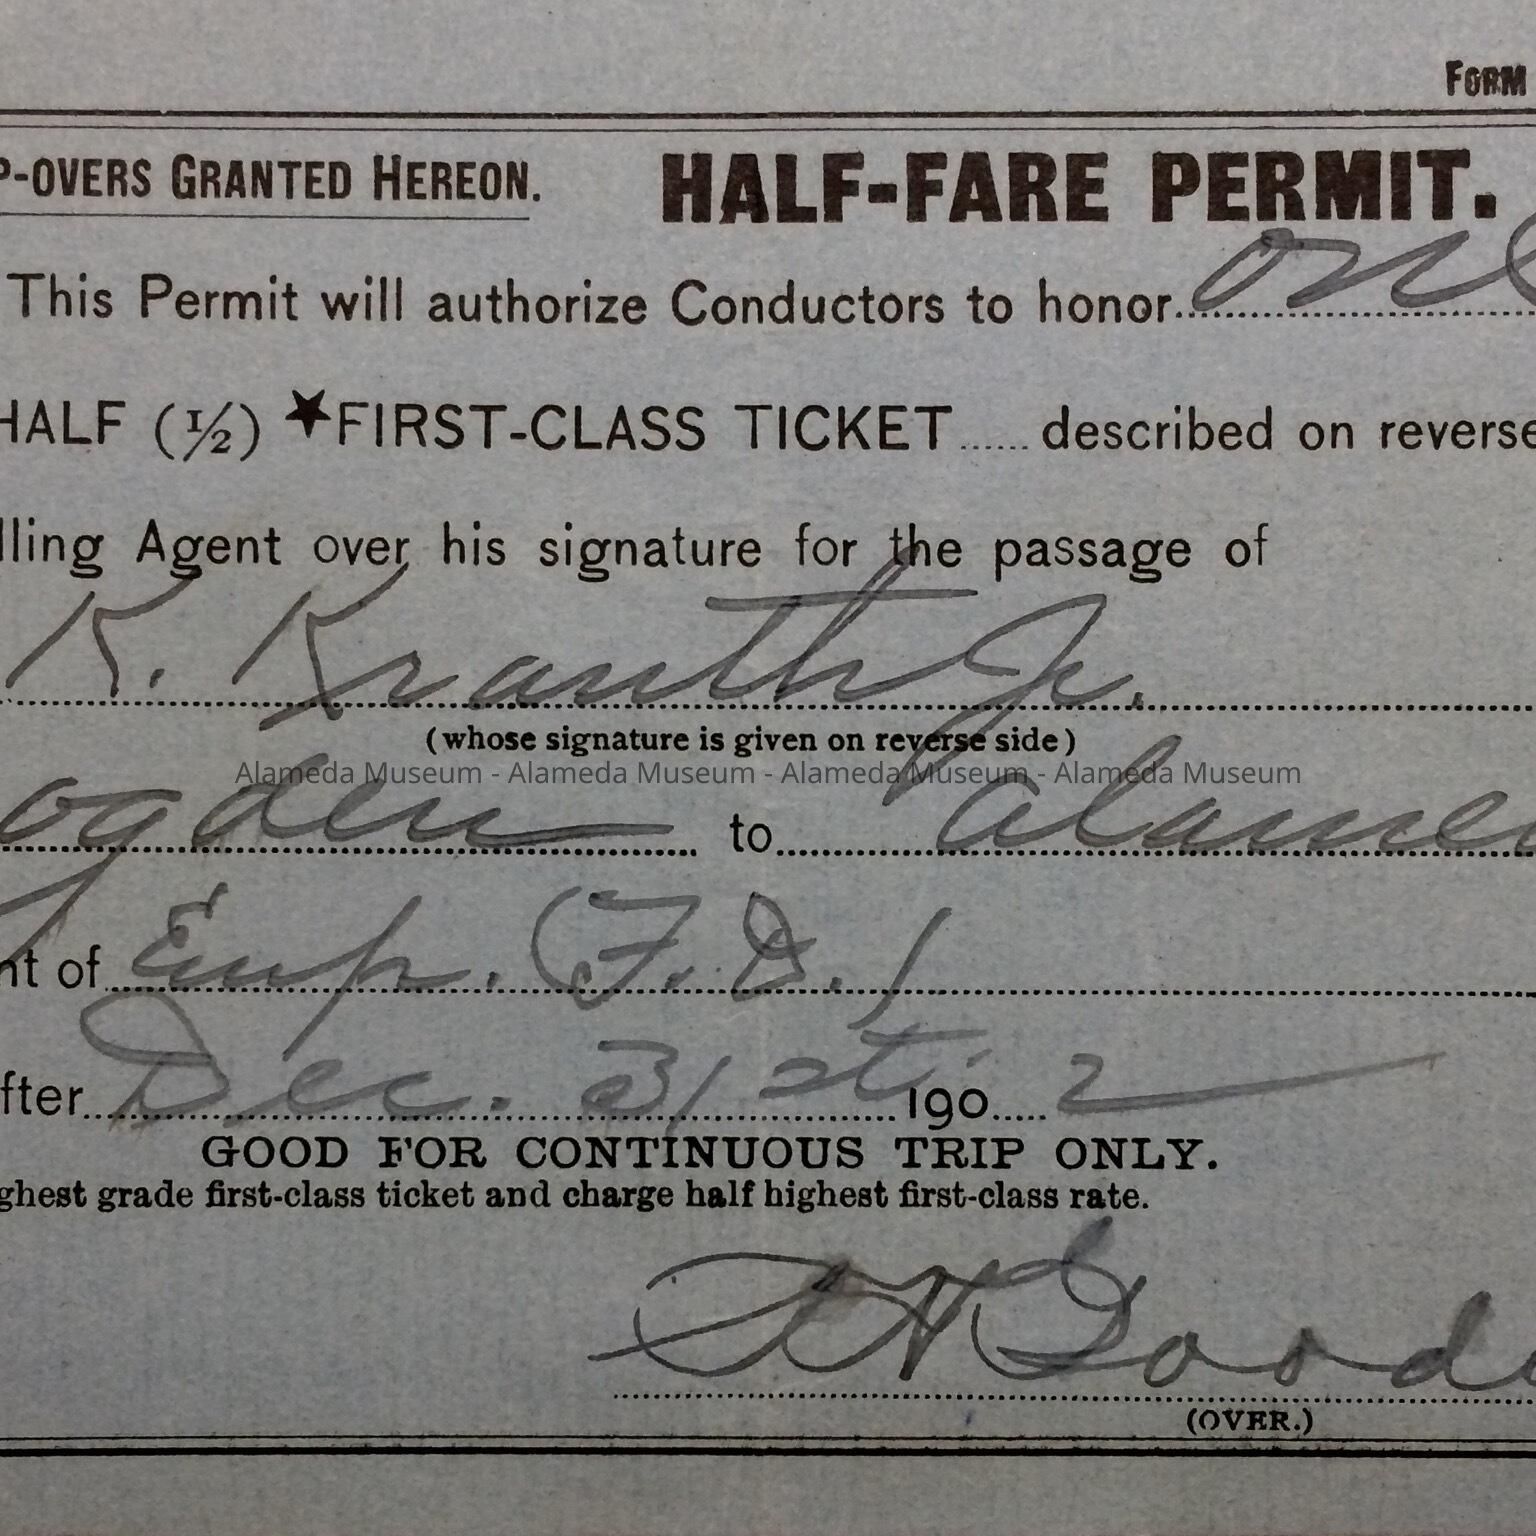 FORM
P-OVERS GRANTED HEREON. HALF-FARE PERMIT.
This Permit will authorize Conductors to honor one
HALF (1/2) ★FIRST-CLASS TICKET...... described on reverse
lling Agent over his signature for the passage of
K. Krauth Jr.
(whose signature is given on reverse side)
Alameda Museum - Alameda Museum - Alameda Museum - Alameda Museum
Ogden to Alamed
nt of Emp. (F.D.)
fter Dec. 31st 1902
GOOD FOR CONTINUOUS TRIP ONLY.
ghest grade first-class ticket and charge half highest first-class rate.
Good
(OVER.)